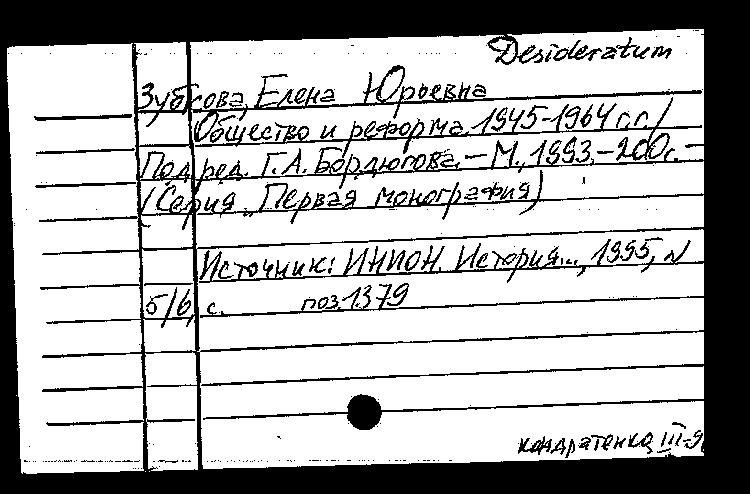 Desideratum
Зубкова, Елена Юрьевна
Общество и реформа 1945-1964 г.г. /
Под ред. Г. А. Бордюгова. – М., 1993. – 200 с. –
(Серия „Первая монография)
Источник: ИНИОН. История..., 1995, N
5/6, с. поз. 1379
Кондратенко III-9